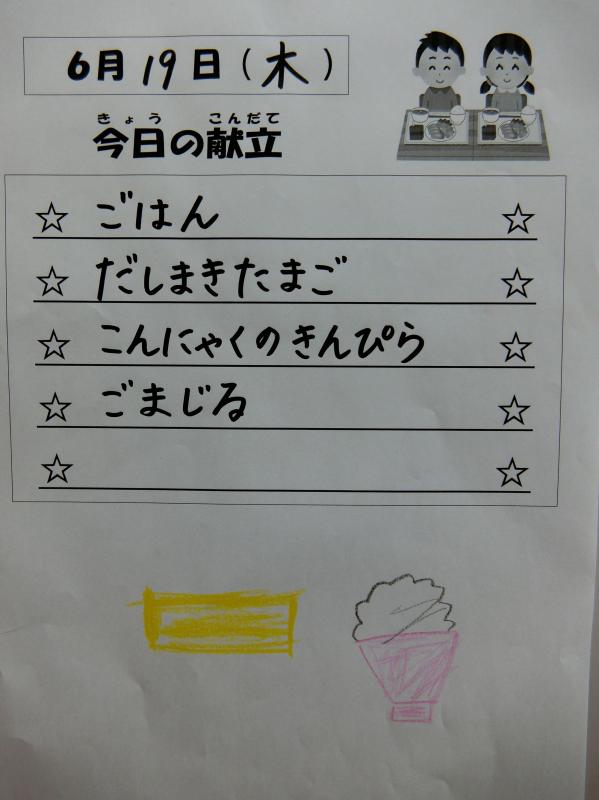 6月19日(木)
きょう こんだて
今日の献立
☆ ごはん ☆
☆ だしまきたまご ☆
☆ こんにゃくのきんぴら ☆
☆ ごまじる ☆
☆ ☆